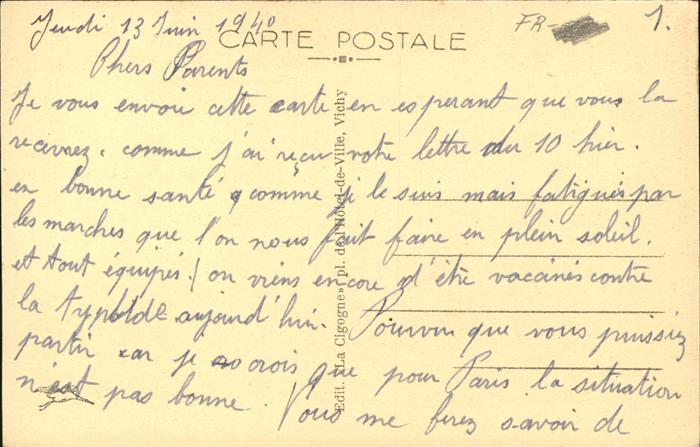 Jeudi 13 Juin 1940
FR-
1.
CARTE POSTALE
Chers Parents
Je vous envoi cette carte en esperant que vous la
recevrez. comme j'ai reçu votre lettre du 10 hier.
en bonne santé comme je le suis mais fatigués par
les marches que l'on nous fait faire en plein soleil.
et tout équipés. on viens encore d'être vaccinés contre
la typhoïde aujourd'hui. Pourvu que vous puissiez
partir car je crois que pour Paris la situation
n'est pas bonne. Vous me ferez savoir de
Edit. « La Cigogne », pl. de l'Hôtel-de-Ville, Vichy